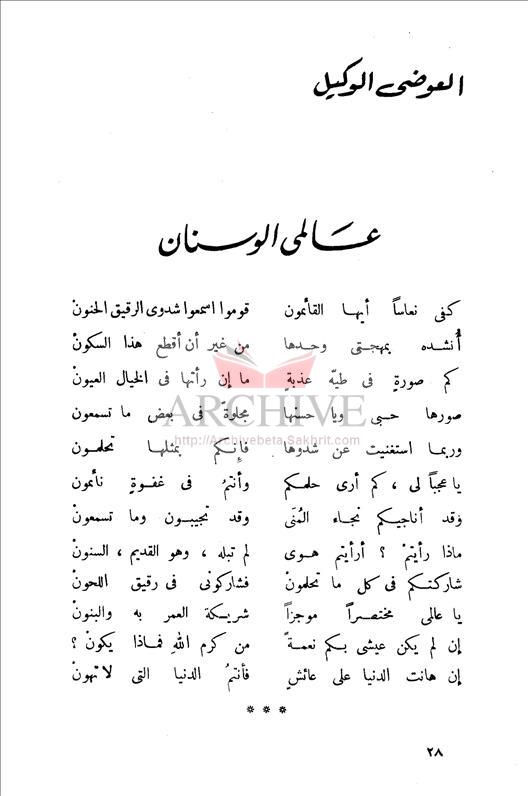 العوضى الوكيل
عَالمى الوسنان
كفى نعاساً أيها القائمون قوموا اسمعوا شدوى الرقيق الحنونْ
أُنشده بمهجتى وحدها من غير أن أقطع هذا السكونْ
كم صورةٍ فى طيّه عذبةٍ ما إن رأتها فى الخيال العيونْ
صورها حبى ويا حسنها مجلوة فى بعض ما تسمعون
وربما استغنيت عن شدوها فإنكم بمثلها تحلمون
يا عجباً لى ، كم أرى حلمكم وأنتمُ فى غفوةٍ نائمون
وقد أناجيكم نجاء المُنَى وقد تجيبون وما تسمعونْ
ماذا رأيتمْ ؟ أرأيتم هوى لم تبله ، وهو القديم ، السنونْ
شاركتكم فى كل ما تحلمونْ فشاركونى فى رقيق اللحونْ
يا عالمى مختصراً موجزاً شريكة العمر به والبنونْ
إن لم يكن عيشى بكم نعمةً من كرم اللهِ فماذا يكونْ ؟
إن هانت الدنيا على عائشٍ فأنتمُ الدنيا التى لاتهونْ
* * *
٢٨
ARCHIVE
http://Archivebeta.Sakhrit.com